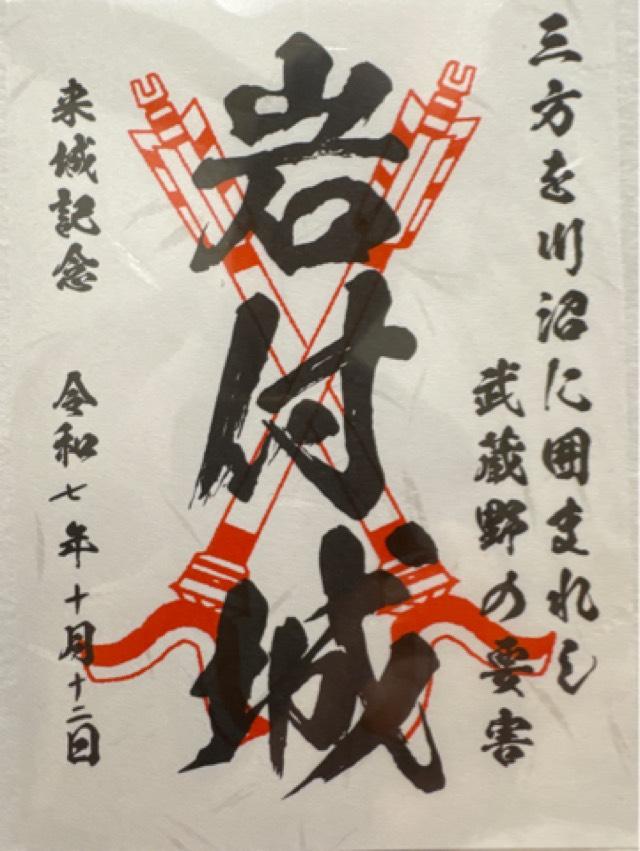 三方を川沼に囲まれし
武蔵野の要害
岩付城
来城記念 令和七年十月十二日